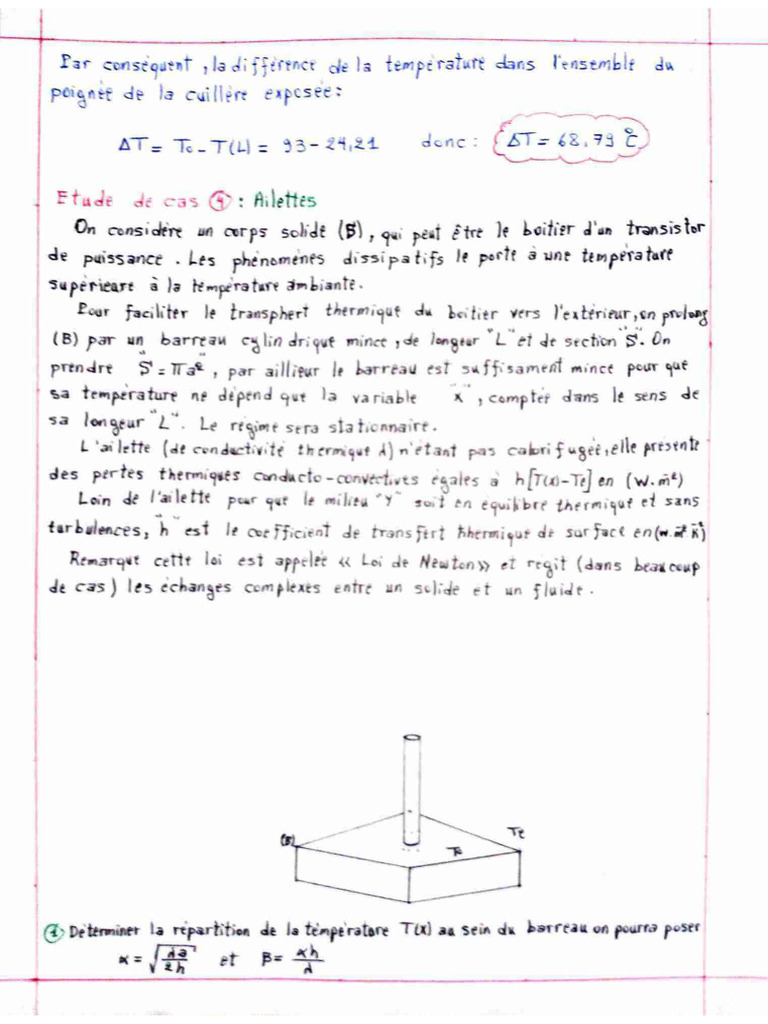 Par conséquent, la différence de la température dans l'ensemble du
poignée de la cuillère exposée:
ΔT = T0 - T(L) = 93 - 24,21 donc : ΔT = 68,79 °C
Etude de cas ④ : Ailettes
On considère un corps solide (B), qui peut être le boitier d'un transistor
de puissance. Les phénomènes dissipatifs le porte à une température
supérieare à la température ambiante.
Pour faciliter le transphert thermique du boitier vers l'extérieur, on prolong
(B) par un barreau cylindrique mince, de longeur "L" et de section "S". On
prendre "S = πa²", par aillieur le barreau est suffisament mince pour que
sa température ne dépend que la variable "x", comptée dans le sens de
sa longeur "L". Le régime sera stationnaire.
L'ailette (de conductivité thermique λ) n'étant pas calorifugée, elle présente
des pertes thermiques conducto-convectives égales à h[T(x)-Te] en (W.m⁻²)
Loin de l'ailette pour que le milieu "Y" soit en équilibre thermique et sans
turbulences, "h" est le coefficient de transfert thermique de surface en (w.m⁻².K⁻¹)
Remarque cette loi est appelée << Loi de Newton >> et régit (dans beaucoup
de cas) les échanges complexes entre un solide et un fluide.
(B)
T0
Te
① Déterminer la répartition de la température T(x) au sein du barreau on pourra poser
α = √(λa/2h) et β = αh/λ